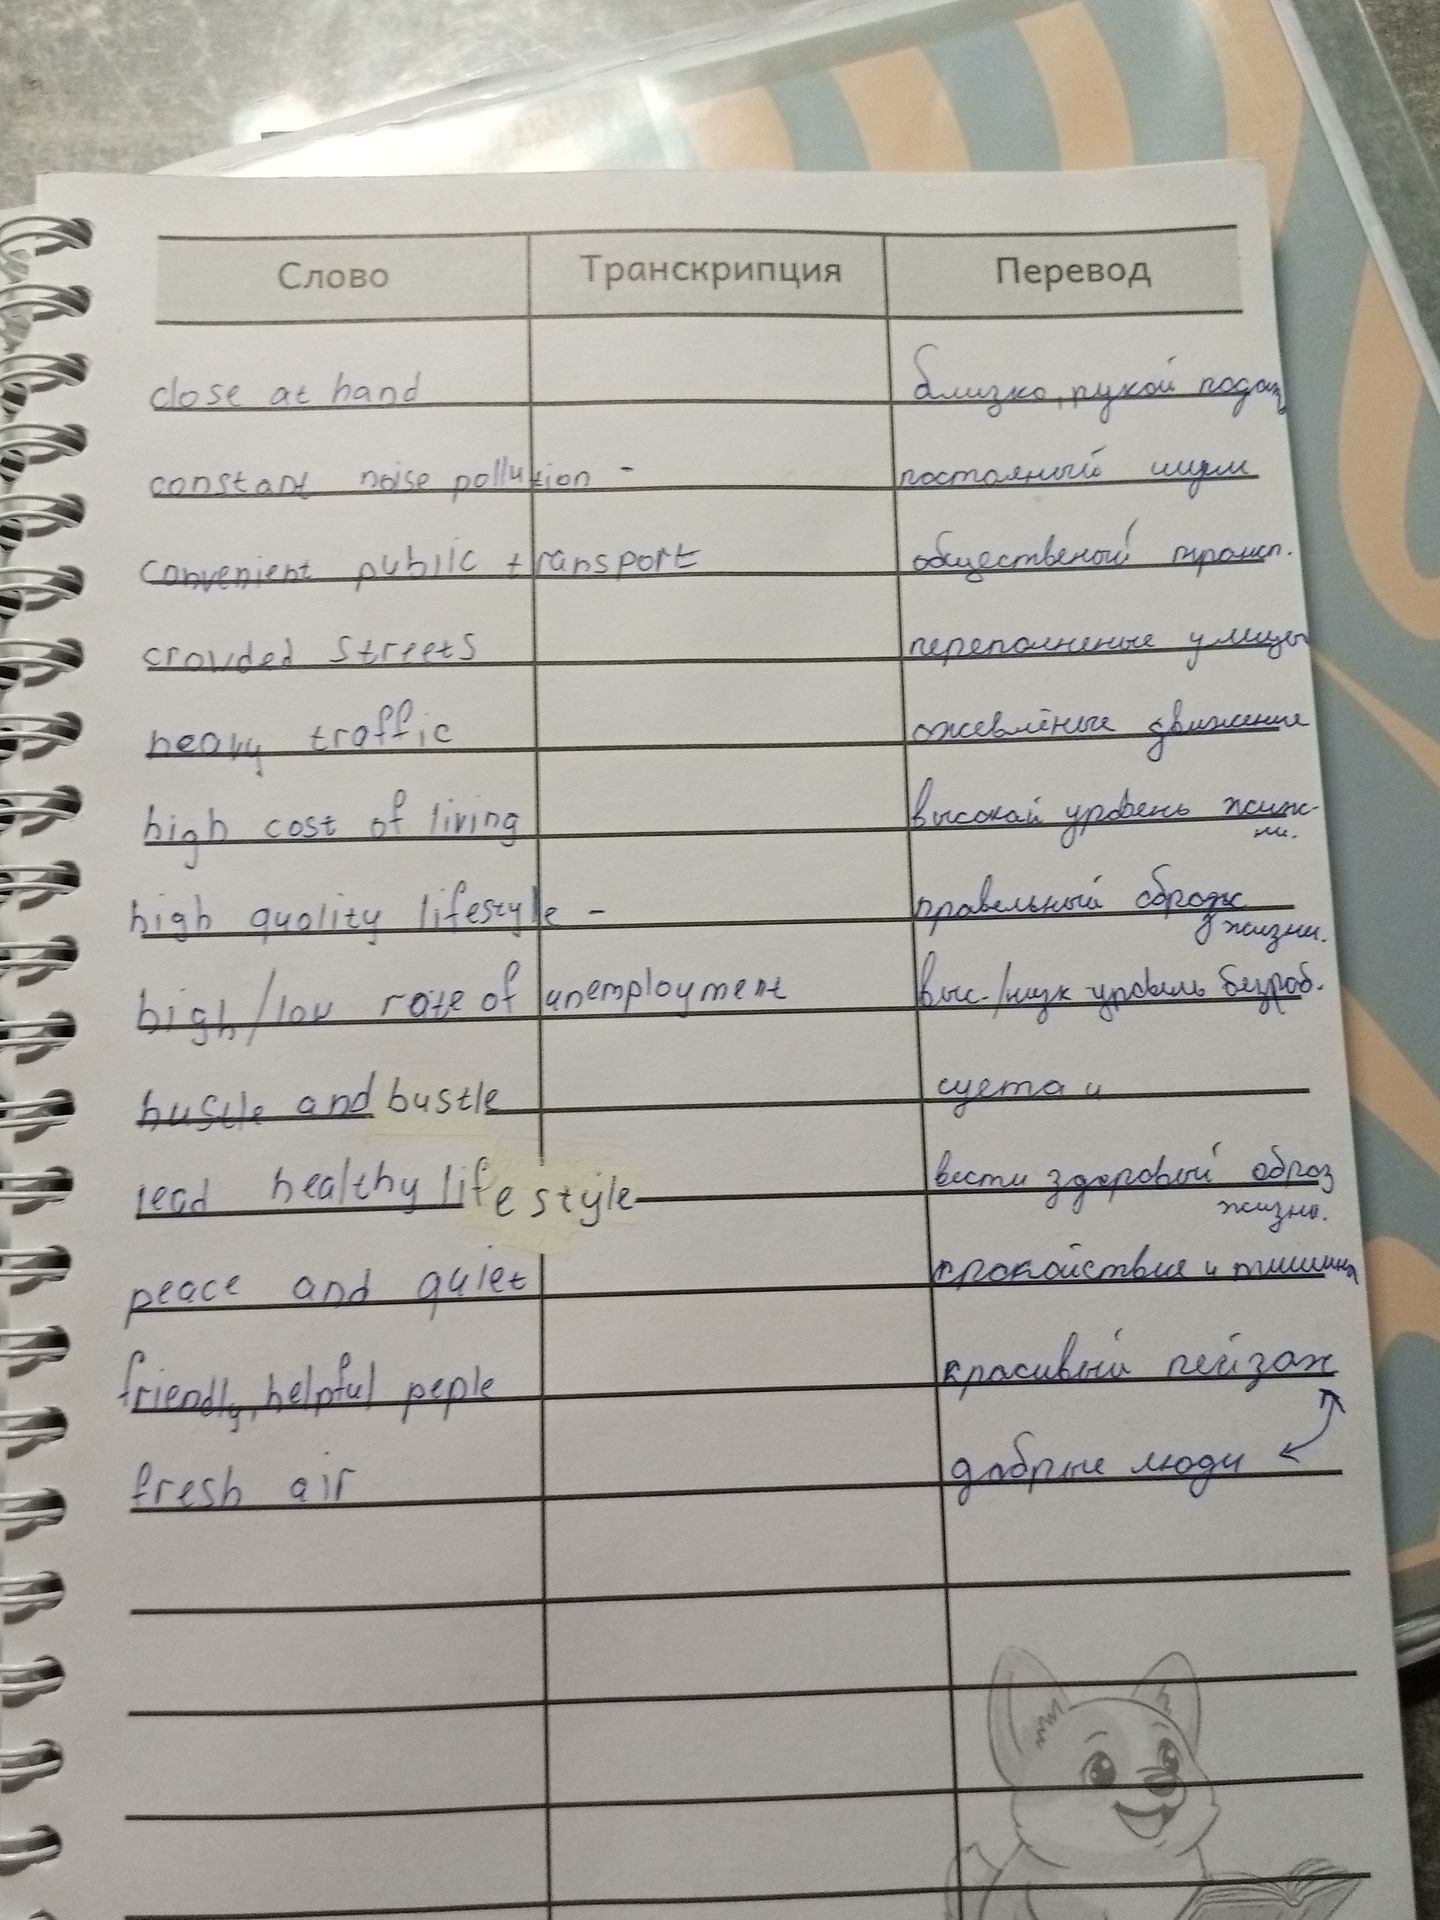 Слово Транскрипция Перевод
close at hand близко, рукой подать
constant noise pollution - постояный шум
convenient public transport общественый трансп.
crowded streets переполненые улицы
heavy traffic ожевлёные движение
high cost of living высокий уровень жиж-
ни.
high quality lifestyle - правельный оброж
жизни.
high/low rate of unemployment выс./низк уровень безраб.
hustle and bustle суета и
lead healthy lifestyle вести здоровый образ
жизни.
peace and quiet спокойствие и тишина
friendly, helpful peple красивый пейзаж
fresh air добрые люди